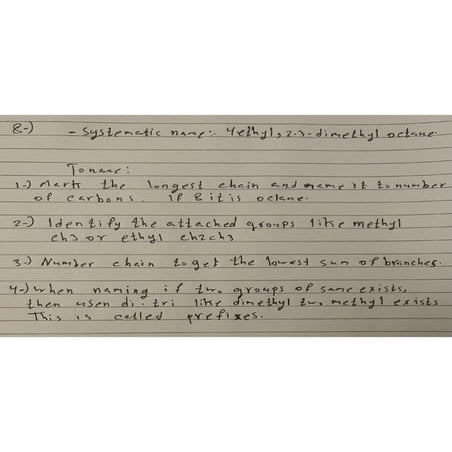 8-)
- Systematic name:- 4ethyl, 2-3-dimethyl octane.
To name:
1-) Mark the longest chain and name it to number
of carbons. if 8 it is octane.
2-) Identify the attached groups like methyl
ch3 or ethyl ch2ch3
3-) Number chain to get the lowest sum of branches.
4-) when naming if two groups of same exists,
then usen di-tri like dimethyl two methyl exists
This is called prefixes.